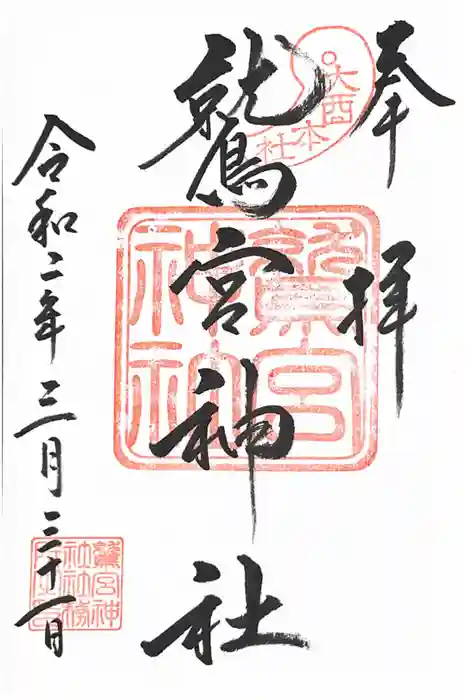 奉拝
大酉本社
鷲宮神社
鷲宮
神社
令和二年三月三十一日
鷲宮神
社社務